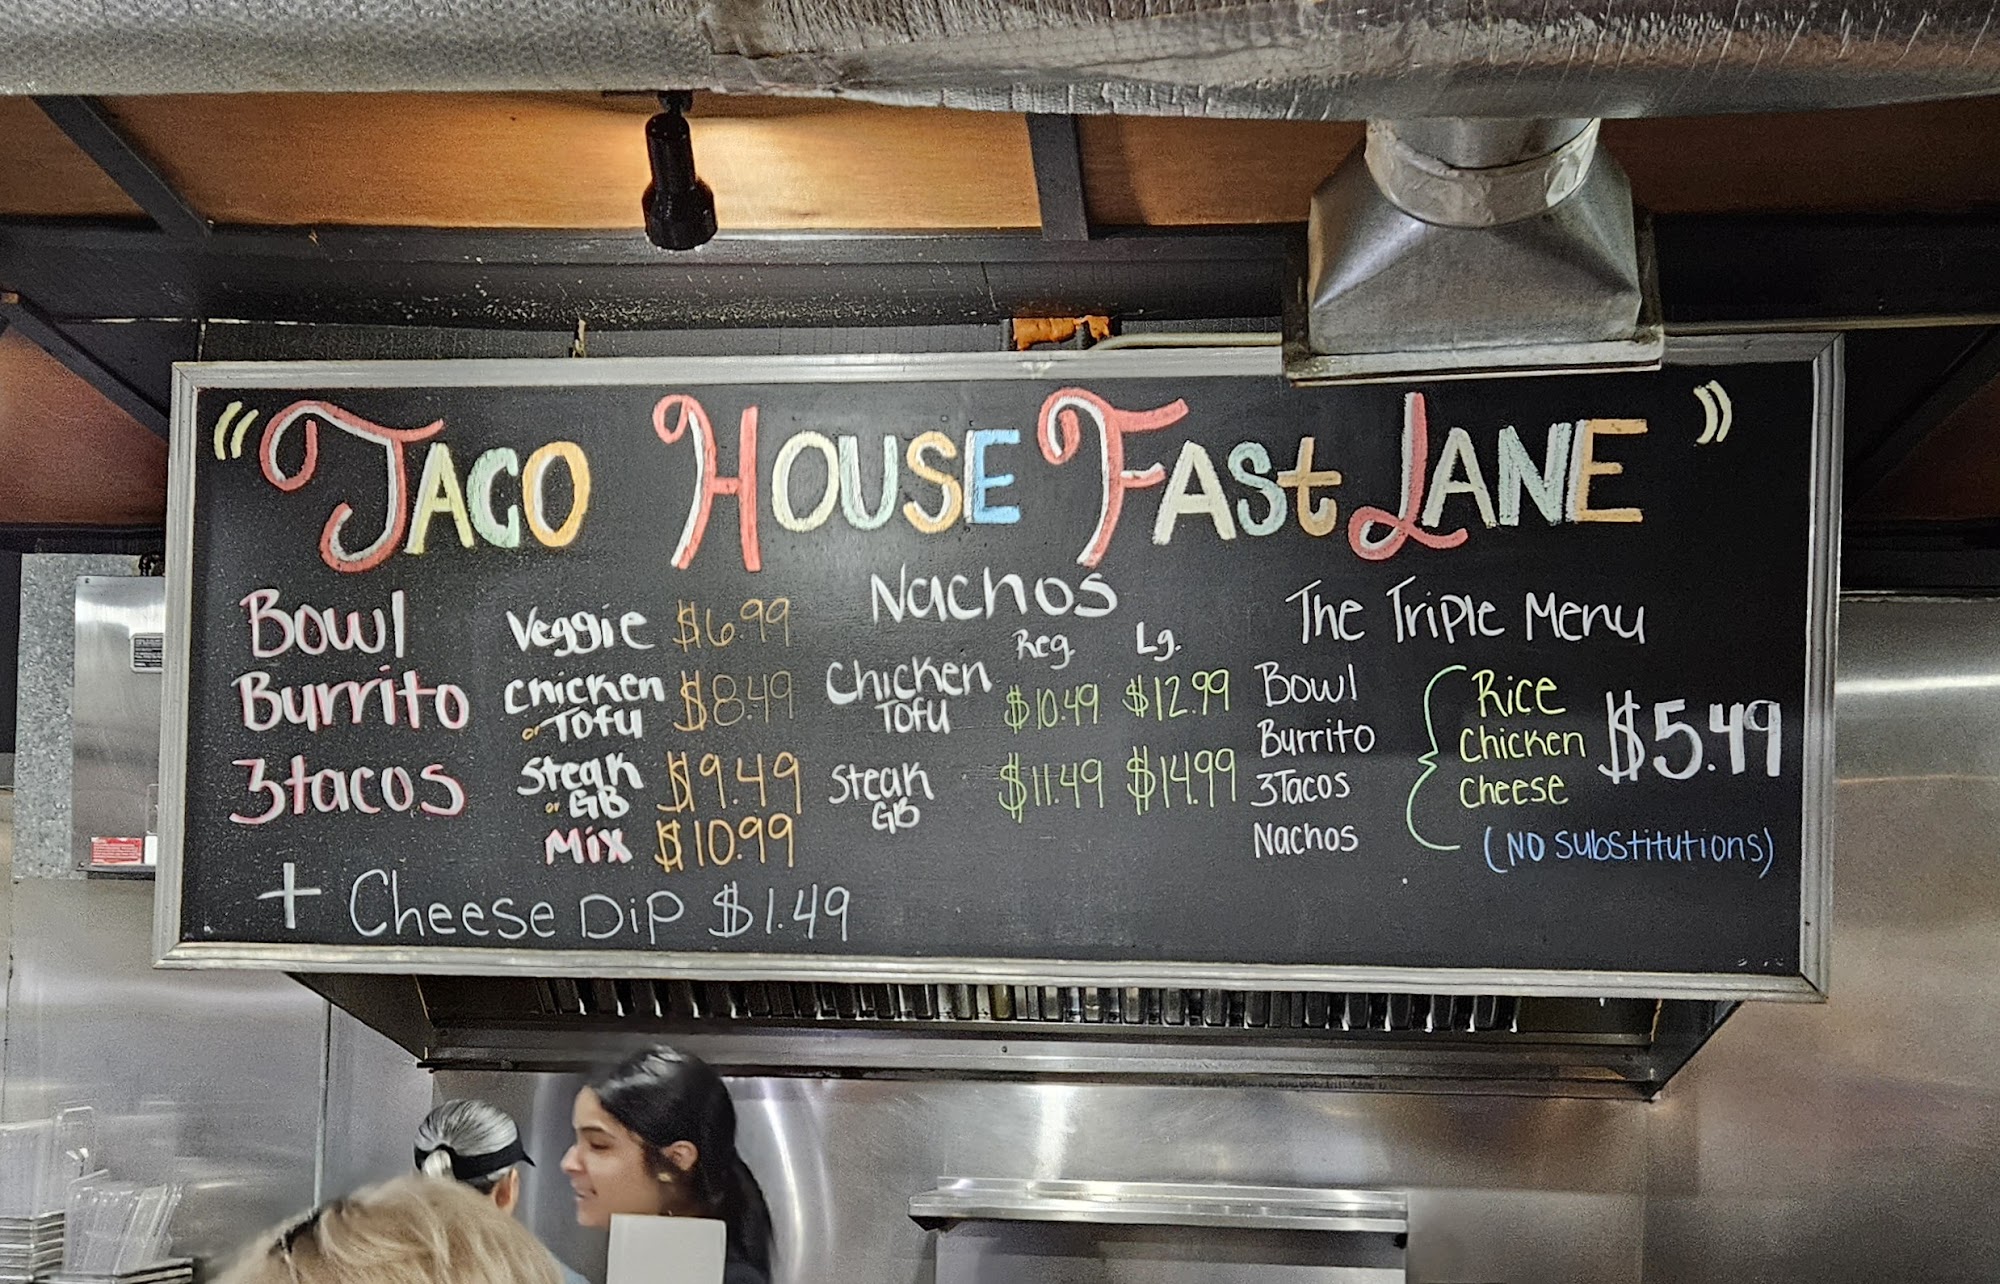 "Taco House Fast Lane"
Bowl
Burrito
3tacos
Veggie $6.99
Chicken
or Tofu $8.49
Steak
or GB $9.49
Mix $10.99
+ Cheese Dip $1.49
Nachos
Reg. Lg.
Chicken
Tofu $10.49 $12.99
Steak
GB $11.49 $14.99
The Triple Menu
Bowl
Burrito
3Tacos
Nachos
Rice
Chicken
Cheese
$5.49
(No substitutions)